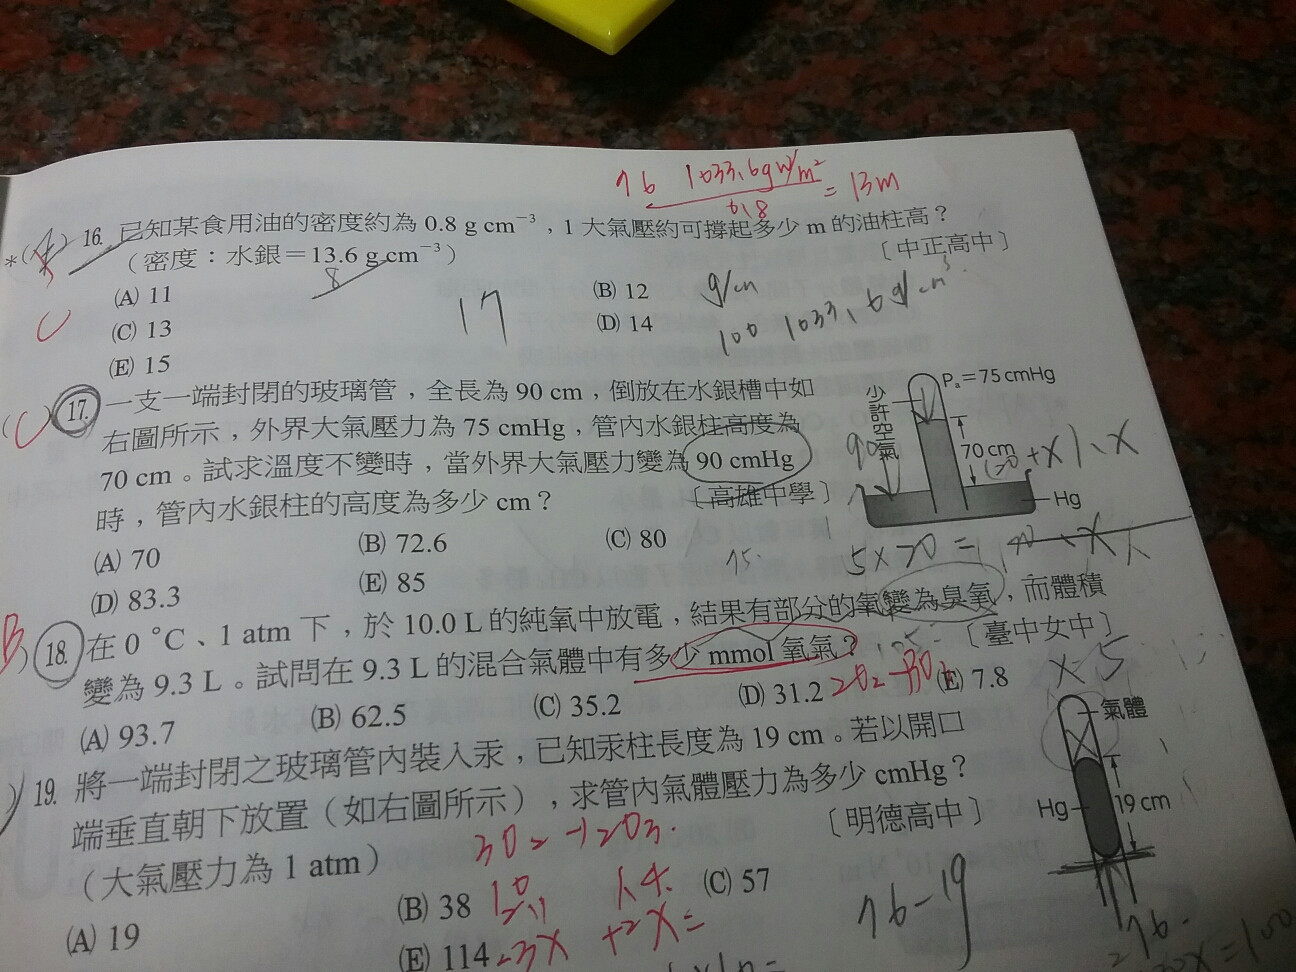 76 1033.6gw/m² = 13m
0.8
16. 已知某食用油的密度約為 0.8 g cm⁻³，1 大氣壓約可撐起多少 m 的油柱高？
（密度：水銀＝13.6 g cm⁻³）
〔中正高中〕
(A) 11
(B) 12
g/cm
(C) 13
17
(D) 14
1033.6g/cm³
(E) 15
C
17. 一支一端封閉的玻璃管，全長為 90 cm，倒放在水銀槽中如
右圖所示，外界大氣壓力為 75 cmHg，管內水銀柱高度為
70 cm。試求溫度不變時，當外界大氣壓力變為 90 cmHg
時，管內水銀柱的高度為多少 cm？
〔高雄中學〕
少許空氣
Pₐ＝75 cmHg
70 cm
Hg
90
(A) 70
(B) 72.6
(C) 80
(D) 83.3
(E) 85
B
18. 在 0 °C、1 atm 下，於 10.0 L 的純氧中放電，結果有部分的氧變為臭氧，而體積
變為 9.3 L。試問在 9.3 L 的混合氣體中有多少 mmol 氧氣？
〔臺中女中〕
(A) 93.7
(B) 62.5
(C) 35.2
(D) 31.2
(E) 7.8
x-5
19. 將一端封閉之玻璃管內裝入汞，已知汞柱長度為 19 cm。若以開口
端垂直朝下放置（如右圖所示），求管內氣體壓力為多少 cmHg？
（大氣壓力為 1 atm）
〔明德高中〕
氣體
Hg
19 cm
(A) 19
(B) 38
(C) 57
(E) 114
76-19